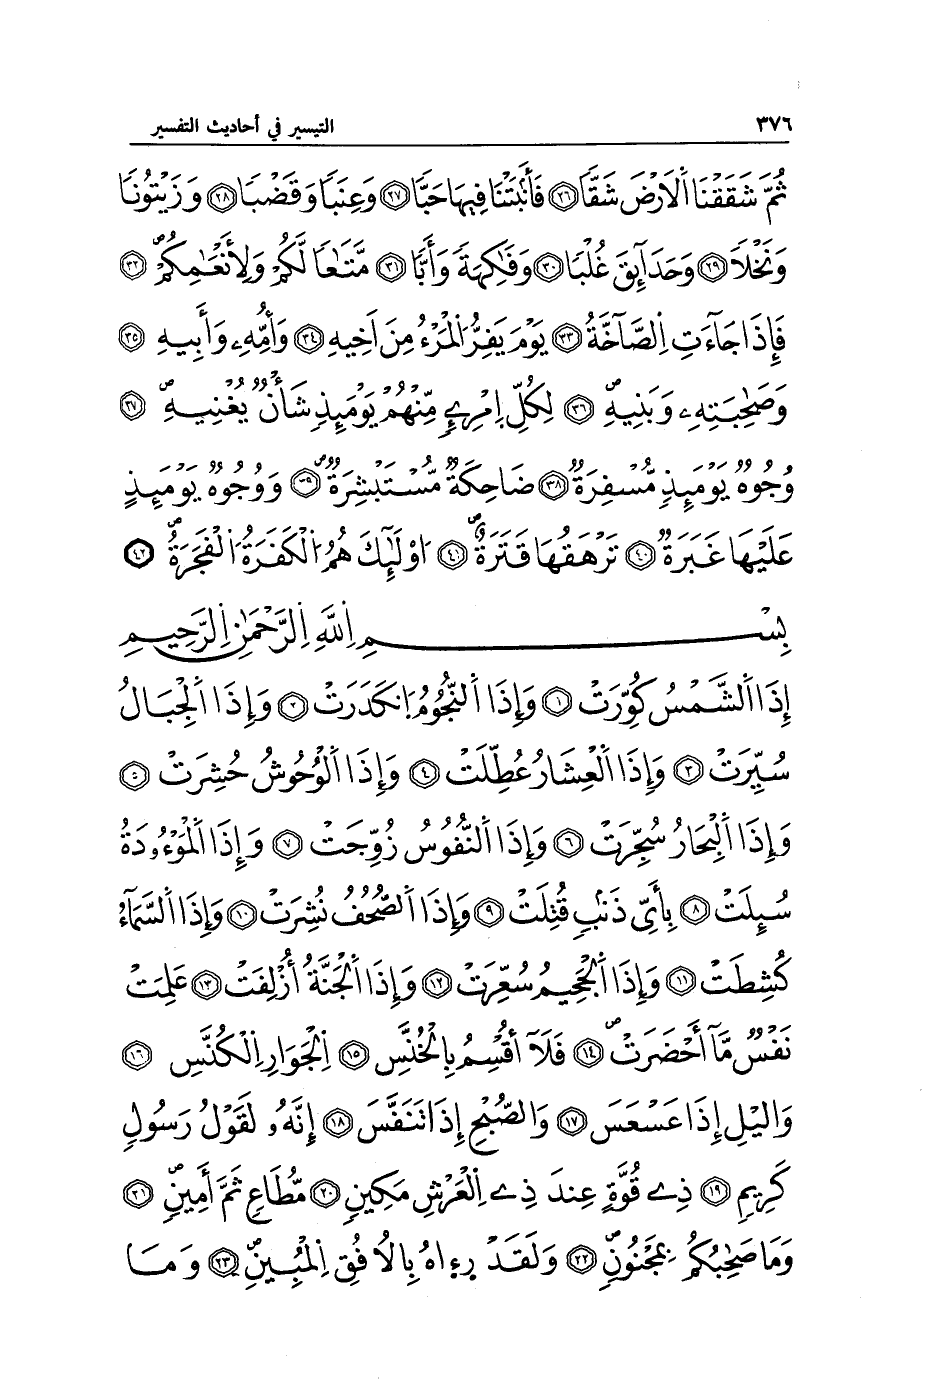 ٣٧٦ التيسير في أحاديث التفسير
ثُمَّ شَقَقْنَا اَ۬لَارْضَ شَقّاٗ ٢٦ فَأَنۢبَتْنَا فِيهَا حَبّاٗ ٢٧ وَعِنَباٗ وَقَضْباٗ ٢٨ وَزَيْتُوناٗ
وَنَخْلاٗ ٢٩ وَحَدَآئِقَ غُلْباٗ ٣٠ وَفَٰكِهَةٗ وَأَبّاٗ ٣١ مَّتَٰعاٗ لَّكُمْ وَلِأَنْعَٰمِكُمْ ٣٢
فَإِذَا جَآءَتِ اِ۬لصَّآخَّةُ ٣٣ يَوْمَ يَفِرُّ اُ۬لْمَرْءُ مِنَ اَخِيهِ ٣٤ وَأُمِّهِۦ وَأَبِيهِ ٣٥
وَصَٰحِبَتِهِۦ وَبَنِيهِ ٣٦ لِكُلِّ اِ۪مْرِےٕٖ مِّنْهُمْ يَوْمَئِذٖ شَأْنٞ يُغْنِيهِ ٣٧
وُجُوهٞ يَوْمَئِذٖ مُّسْفِرَةٞ ٣٨ ضَاحِكَةٞ مُّسْتَبْشِرَةٞ ٣٩ وَوُجُوهٞ يَوْمَئِذٍ
عَلَيْهَا غَبَرَةٞ ٤٠ تَرْهَقُهَا قَتَرَةٌ ٤١ اُوْلَٰٓئِكَ هُمُ اُ۬لْكَفَرَةُ اُ۬لْفَجَرَةُ ٤٢
بِسْمِ اِ۬للَّهِ اِ۬لرَّحْمَٰنِ اِ۬لرَّحِيمِ
إِذَا اَ۬لشَّمْسُ كُوِّرَتْ ١ وَإِذَا اَ۬لنُّجُومُ اُ۪نكَدَرَتْ ٢ وَإِذَا اَ۬لْجِبَالُ
سُيِّرَتْ ٣ وَإِذَا اَ۬لْعِشَارُ عُطِّلَتْ ٤ وَإِذَا اَ۬لْوُحُوشُ حُشِرَتْ ٥
وَإِذَا اَ۬لْبِحَارُ سُجِّرَتْ ٦ وَإِذَا اَ۬لنُّفُوسُ زُوِّجَتْ ٧ وَإِذَا اَ۬لْمَوْءُۥدَةُ
سُئِلَتْ ٨ بِأَيِّ ذَنۢبٖ قُتِلَتْ ٩ وَإِذَا اَ۬لصُّحُفُ نُشِرَتْ ١٠ وَإِذَا اَ۬لسَّمَآءُ
كُشِطَتْ ١١ وَإِذَا اَ۬لْجَحِيمُ سُعِّرَتْ ١٢ وَإِذَا اَ۬لْجَنَّةُ أُزْلِفَتْ ١٣ عَلِمَتْ
نَفْسٞ مَّآ أَحْضَرَتْ ١٤ فَلَآ أُقْسِمُ بِالْخُنَّسِ ١٥ اِ۬لْجَوَارِ اِ۬لْكُنَّسِ ١٦
وَاليْلِ إِذَا عَسْعَسَ ١٧ وَالصُّبْحِ إِذَا تَنَفَّسَ ١٨ إِنَّهُۥ لَقَوْلُ رَسُولٖ
كَرِيمٖ ١٩ ذِے قُوَّةٍ عِندَ ذِے اِ۬لْعَرْشِ مَكِينٖ ٢٠ مُّطَاعٖ ثَمَّ أَمِينٖ ٢١
وَمَا صَٰحِبُكُم بِمَجْنُونٖ ٢٢ وَلَقَدْ رِء۪اهُ بِالُافُقِ اِ۬لْمُبِينِ ٢٣ وَمَا